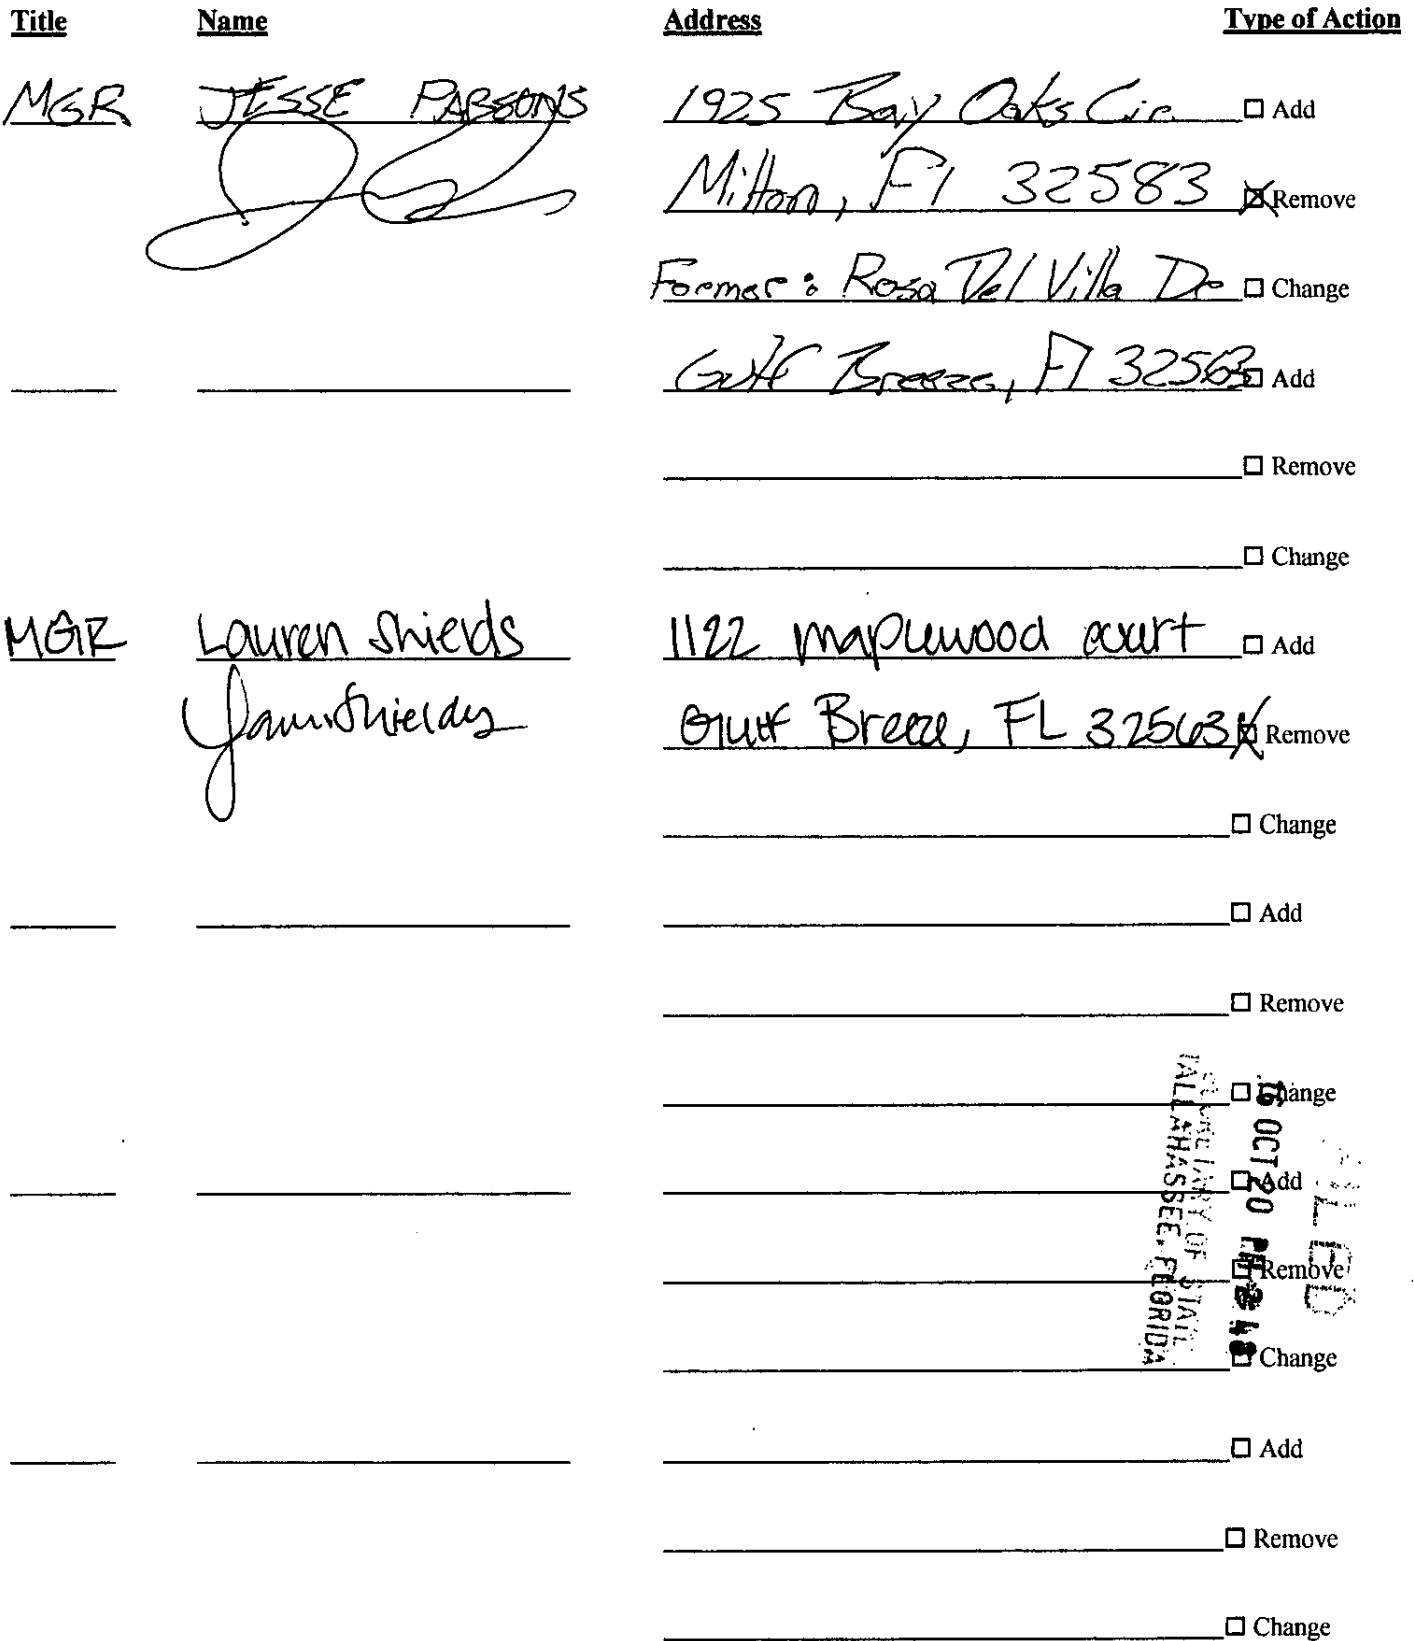 Title Name Address Type of Action
MGR JESSE PARSONS 1925 Bay Oaks Cir. ☐ Add
Milton, Fl 32583 ☒ Remove
Former: Rosa Del Villa Dr ☐ Change
Gulf Breeze, Fl 32563 ☐ Add
☐ Remove
☐ Change
MGR Lauren Shields 1122 maplewood court ☐ Add
Gulf Breeze, FL 32563 ☒ Remove
☐ Change
☐ Add
☐ Remove
☐ Change
☐ Add
☐ Remove
☐ Change
☐ Add
☐ Remove
☐ Change
FILED
16 OCT 20 PM 2:48
SECRETARY OF STATE
TALLAHASSEE, FLORIDA